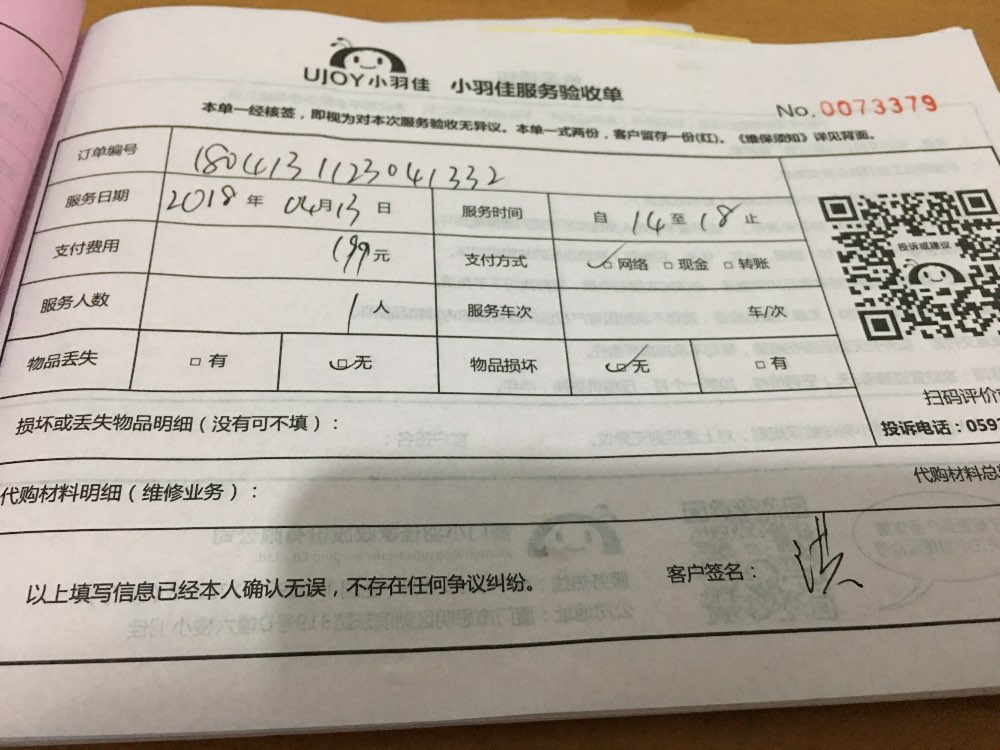 UJOY小羽佳 小羽佳服务验收单
No. 0073379
本单一经核签，即视为对本次服务验收无异议。本单一式两份，客户留存一份(红)。《维保须知》详见背面。
订单编号 1804131123041332
服务日期 2018 年 04 月 13 日 服务时间 自 14 至 18 止
支付费用 199 元 支付方式 ✓□网络 □现金 □转账
服务人数 1 人 服务车次 车/次
物品丢失 □有 ✓□无 物品损坏 ✓□无 □有
投诉或建议
扫码评价
损坏或丢失物品明细（没有可不填）：
投诉电话：059
代购材料明细（维修业务）：
代购材料总
以上填写信息已经本人确认无误，不存在任何争议纠纷。
客户签名：洪